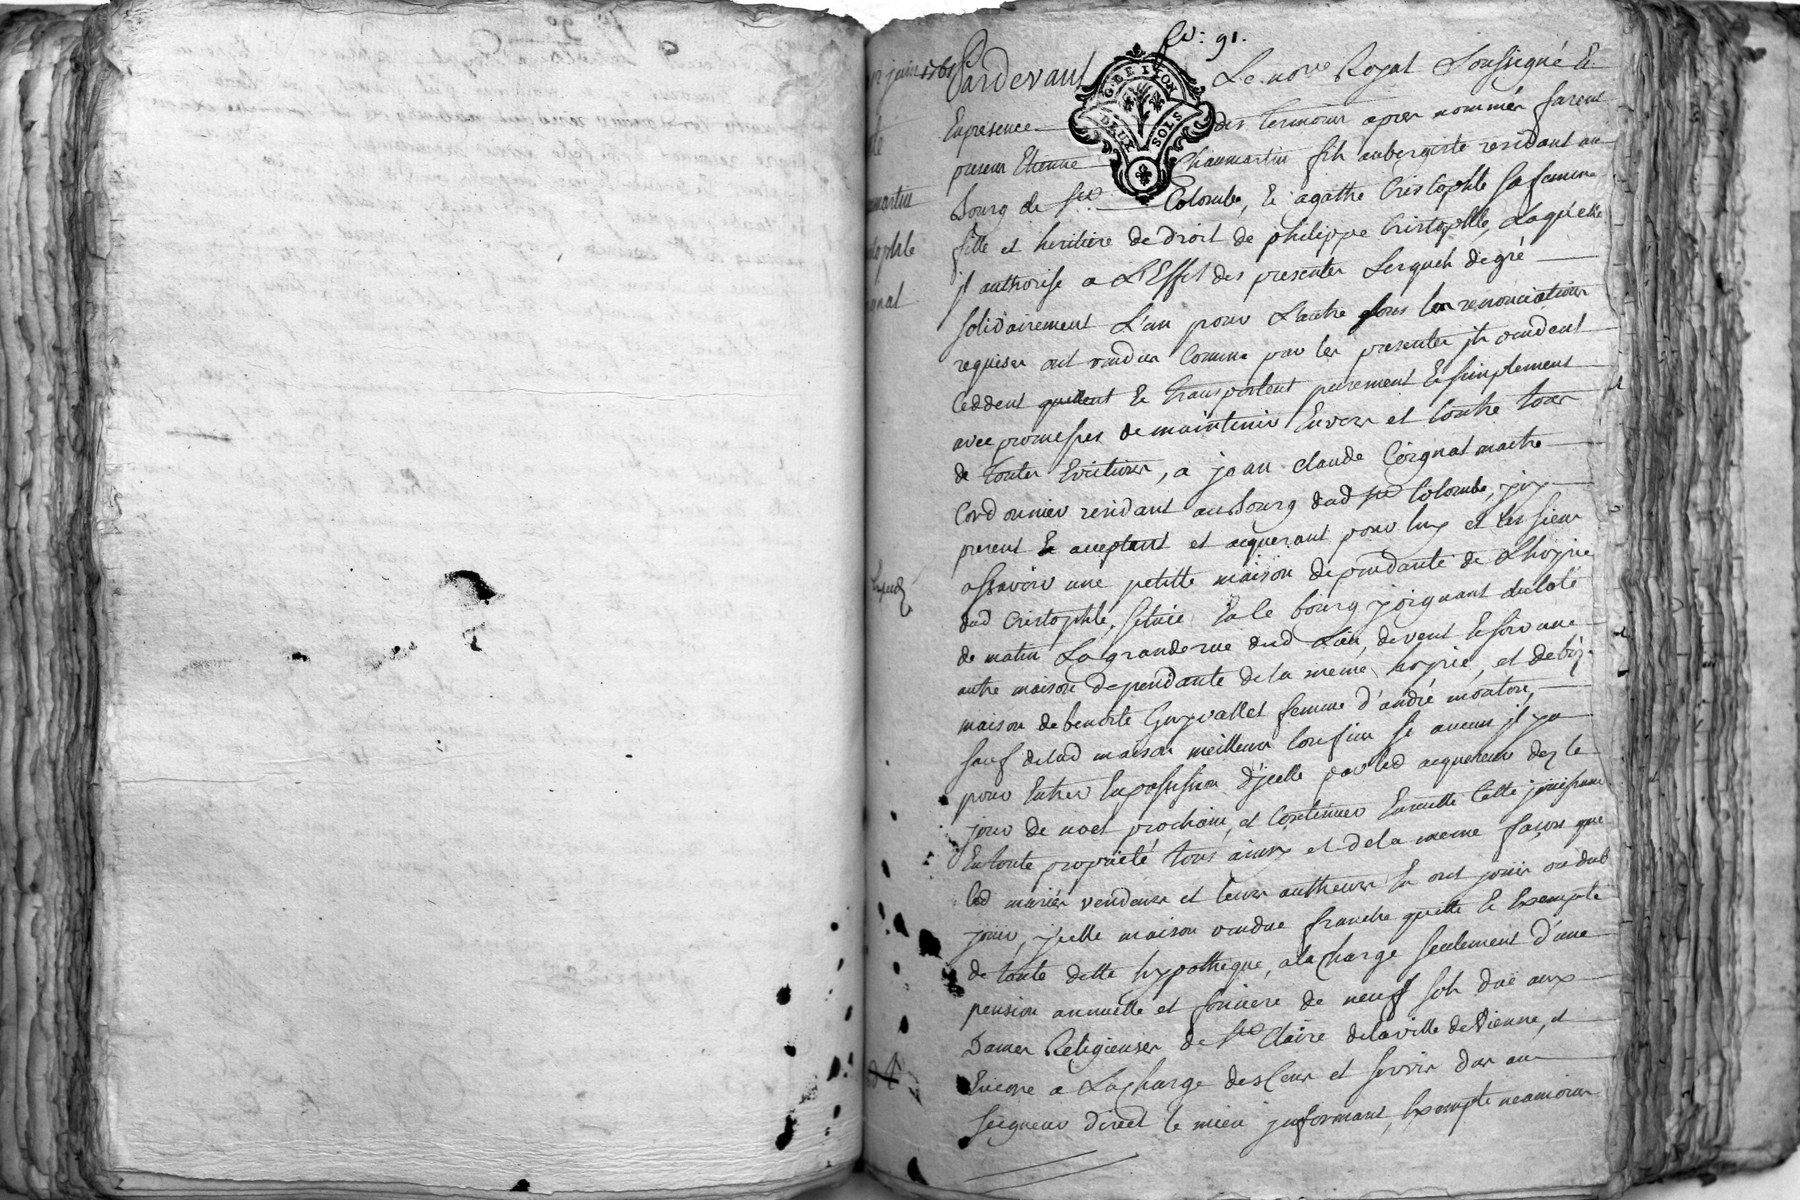 fo: 91.
juin 1761
Pardevant Le nore Royal Soussigné &
G. DE LYON
DEUX SOLS
Enpresence des temoins apres nommés furent
presens Etienne Chaumartin fils aubergiste residant au
Bourg de Ste Colombe, & agathe Cristophle sa femme
fille et heritiere de droit de philippe Cristophle, Laquelle
jl authorise a L'Effet des presentes Lesquels de gré
solidairement L'un pour L'autre sous les renonciations
requises ont vendus Comme par les presentes jls vendent
Ceddent quittent & transportent purement & simplement
avec promesses de maintenir Envers et Contre tous
de toutes Evictions, a jean claude Coignat maitre
Cordonnier residant au Bourg dud Ste Colombe, jcy
present & acceptant et acquerant pour luy et les siens
assavoir une petitte maison dependante de L'hoyrie
dud Cristophle, scituée En le bourg joignant du coté
de matin La grande rue dud Lieu, de vent & soir une
autre maison dependante de la meme hoyrie, et de bize
maison de benoite Guyvallet femme d'andré mouton,
sauf delad maison meilleurs Confins si aucuns jl y a
pour Entrer En possession d'jcelle par led acquereur dez le
jour de noel prochain, et Continuer Ensuitte Cette jouissance
En toute proprieté tous ainsy et de la meme façon que
led mariés vendeurs et leurs autheurs En ont jouis ou dub
jouir, jcelle maison vendue franche quitte & Exempte
de toute dette hypotheque, a la charge seulement d'une
pension annuelle et fonciere de neuf sols due aux
Dames Religieuses de Ste Claire de la ville de Vienne, et
Encore a La charge des Cens et servis dus au
seigneur direct le mieux jnformant, Exempte neamoins
martin
tophle
gnat
Exped